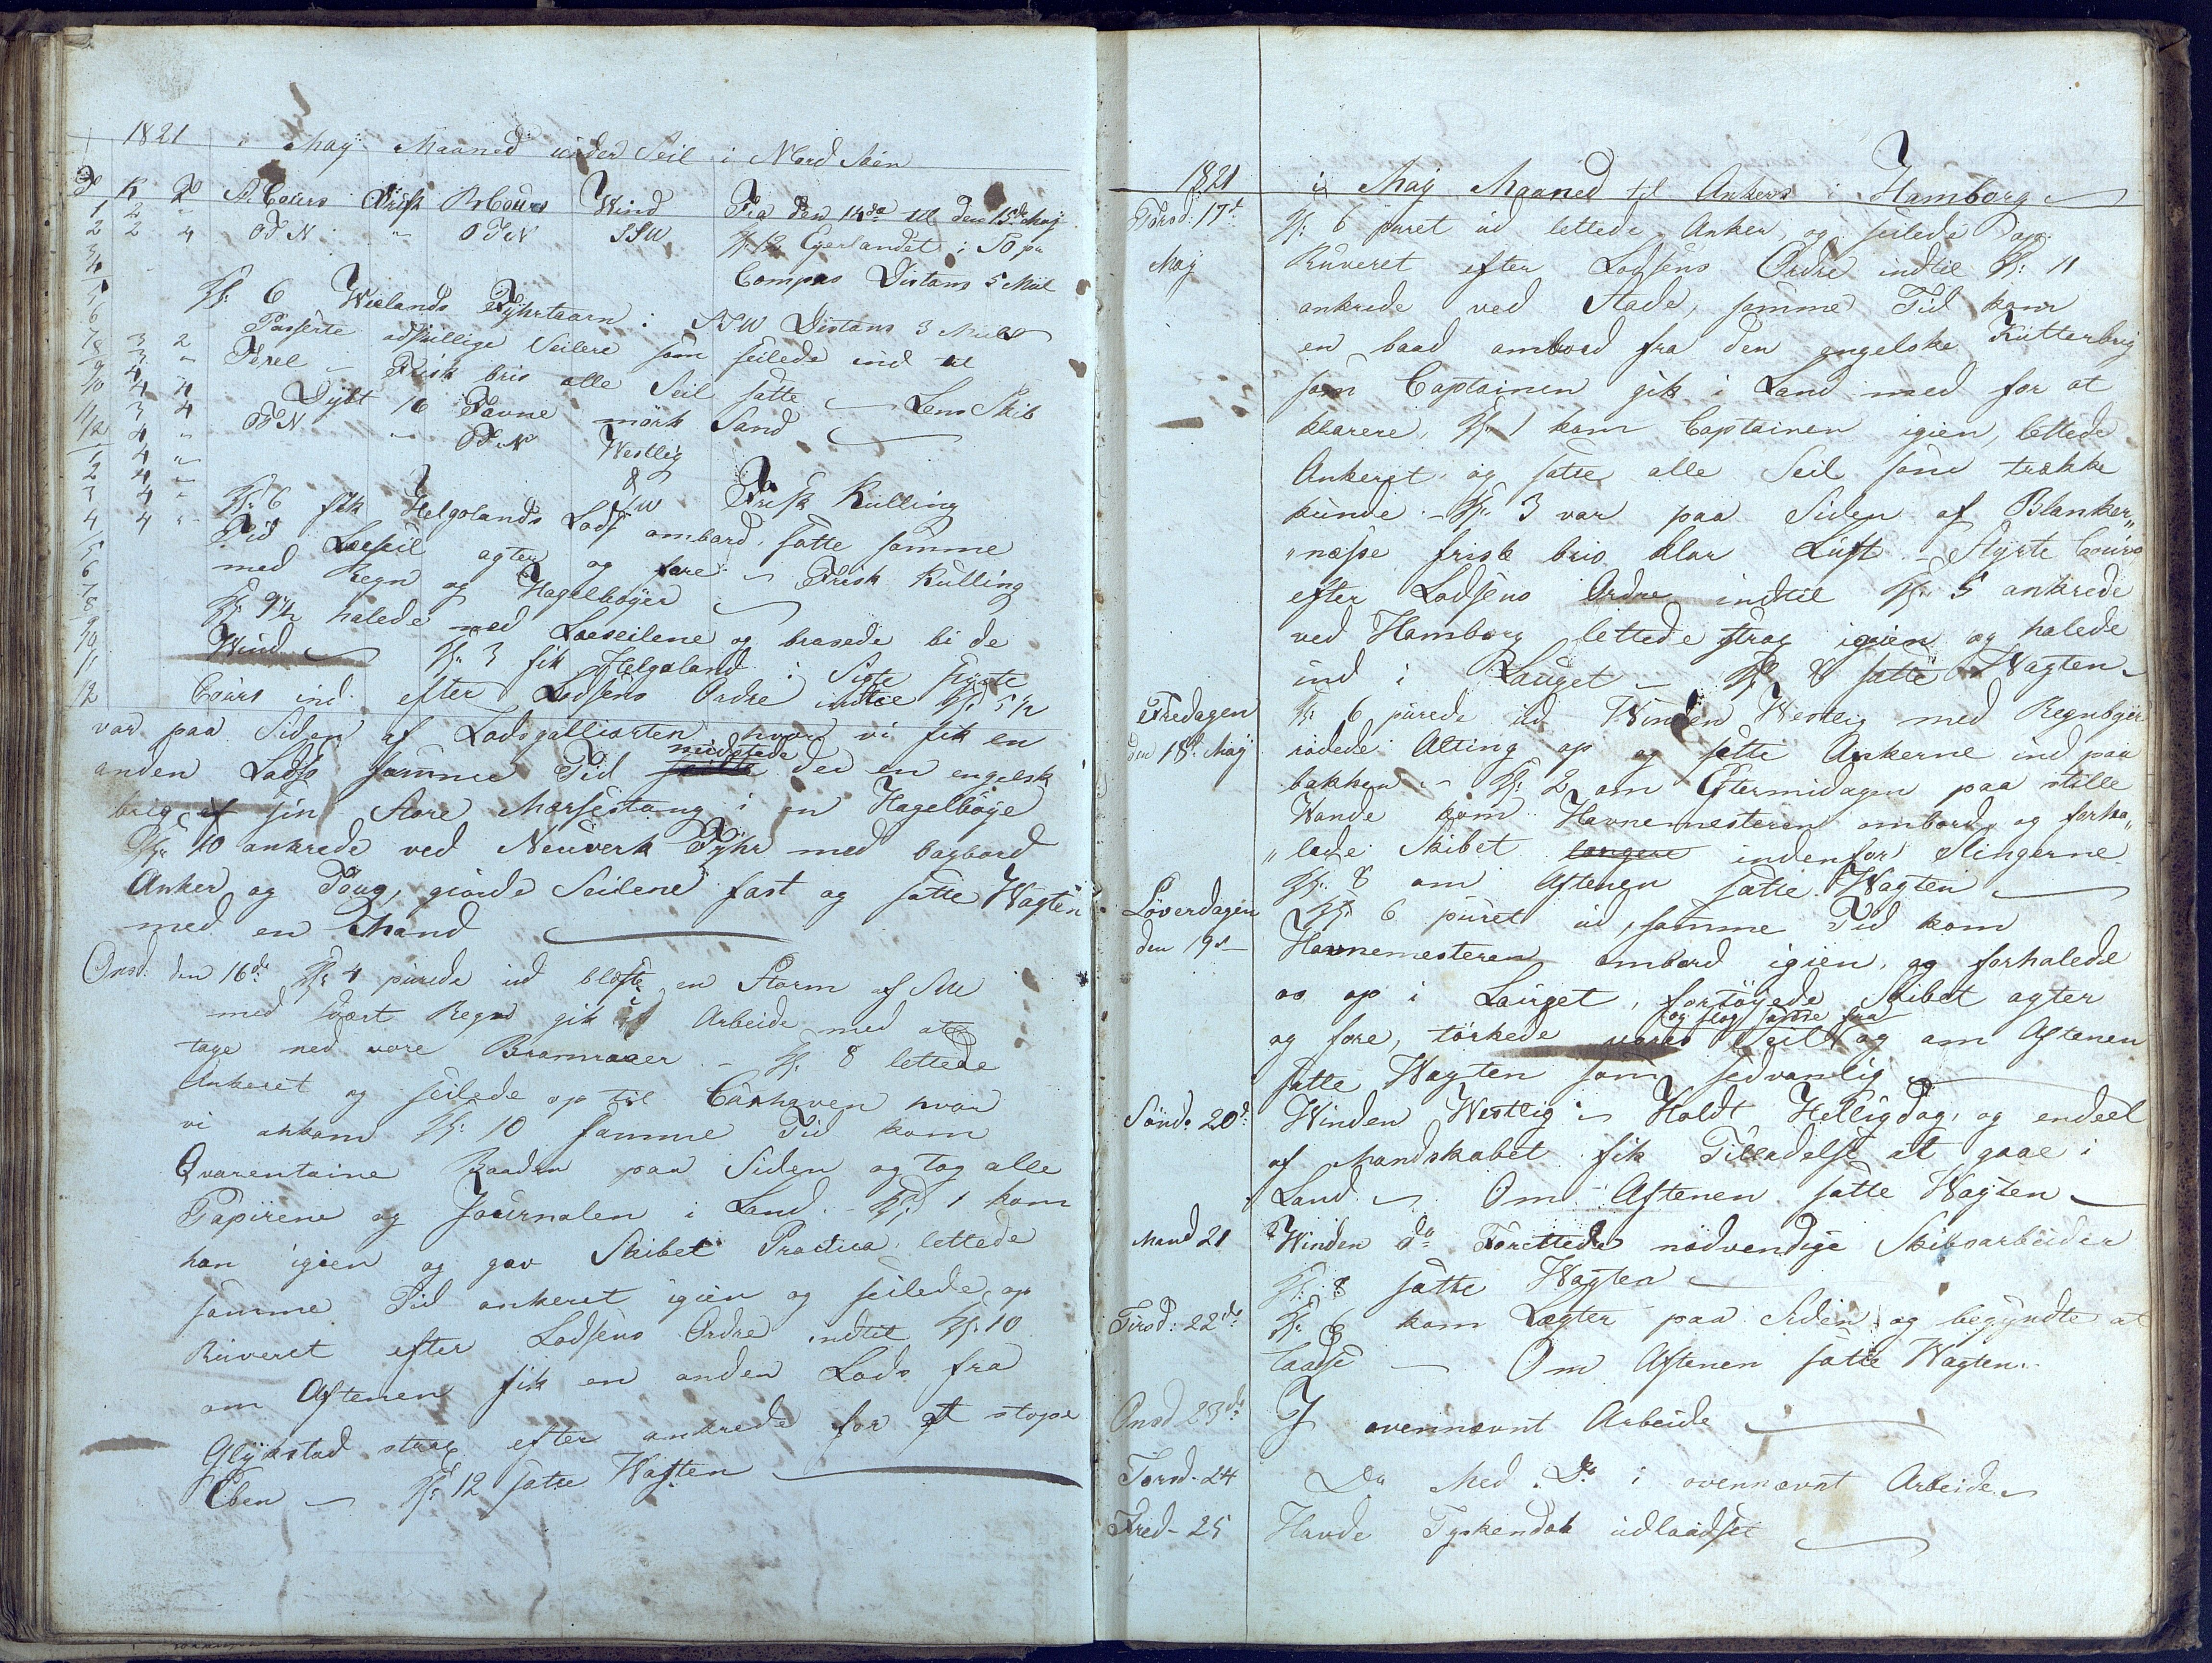 1821 May Maaned under Seil i Nord Søen
K St Cours Drift Bh Cours Wind Fra den 14de til den 15de May
1 2 "
2 2 4 OTN " OTN SSW Kl: 12 Egerlandet i SO pr
3 Compas Distans 5 Miil
4
5 Kl: 6 Wielands Fyhrtaarn i SSW Distans 3 Miil
6 Passerte adskillige Seilere som seilede ind til
7 3 2 Texel – Frisk bris alle Seil satte – Lens Skib
8 3 "
9 4 "
10 4 4 Dybt 16 Favne mørk Sand
11 3 4 OTN " OTN Westlig
12 4 "
1 4 "
2 4 "
3 4 " SW Frisk Kulling
4 4 " Kl: 6 fik Helgolands Lods ombord, satte samme
5 Tid Læseil agter og fore – Frisk Kulling
6 med Regn og Hagelbøyer
7
8 Kl: 9½ halede ned Læseilene og brasede bi de
9 Wind – Kl: 3 fik Helgoland i Sigte styrte
10
11 Cours ind efter Lodsens Ordre indtil Kl: 5½
12
var paa Siden af Lodsgalliarten hvor vi fik en
anden Lods samme Tid midstede der en engelsk
brig af sin Store Mersestang i en Hagelbøye
Kl: 10 ankrede ved Neuverk Fyhr med bagbord
Anker og Toug, giorde Seilene fast og satte Wagten
med en Mand
Onsd: den 16de Kl: 4 purede ud blæste en Storm af SW
med svært Regn gik i Arbeide med at
tage ned vore Bramraaer – Kl: 8 lettede
Ankeret og seilede op til Cuxhaven hvor
vi ankom Kl: 10 samme Tid kom
Qvarentaine Baaden paa Siden og tog alle
Papirene og Journalen i Land – Kl: 1 kom
han igien og gav Skibet Practica lettede
samme Tid ankeret igien og seilede op
Riveret efter Lodsens Ordre indtil Kl: 10
om Aftenen fik en anden Lods fra
Glykstad strax efter ankrede for at stope
Eben – Kl: 12 satte Wagten
1821 i May Maaned til Ankers i Hamborg
Torsd: 17d May Kl: 6 puret ud lettede Anker, og seilede op
Ruveret efter Lodsens Ordre indtil Kl: 11
ankrede ved Stade, samme Tid kom
en baad ombord fra den engelske Kutterbrig
som Captainen gik i Land med for at
klarere, Kl: 1 kom Captainen igien, lettede
Ankeret og satte alle Seil som trække
kunde – Kl: 3 var paa Siden af Blanker„
„næse frisk bris klar Luft – Styrte Cours
efter Lodsens Ordre indtil Kl: 5 ankrede
ved Hamborg lettede strax igien og halede
ind i Lauget – Kl: 8 satte Wagten –
Fredagen den 18d May Kl: 6 purede ud Winden Westlig med Regnbyer
rødede Alting op og satte Ankerne ind paa
bakken – Kl: 2 om Eftermidagen paa stille
Wande kom Havnemesteren ombord, og forha„
„lede Skibet længere indenfor Slingerne.
Kl: 8 om Aftenen satte Wagten
Løverdagen den 19d Kl: 6 puret ud, samme Tid kom
Havnemesteren ombord igien, og forhalede
os op i Lauget, fortøyede Skibet agter
og fore, tørkede vores Seil og slog samme fra og om Aftenen
satte Wagten som sedvanlig
Sønd: 20d Winden Westlig – Holdt Helligdag, og endeel
af Mandskabet fik Tilladelse at gaae i
Land – Om Aftenen satte Wagten –
Mand 21 Winden do Forettede nødvendige Skibsarbeider
Kl: 8 satte Wagten
Tirsd: 22de Kl: 6 kom Lægter paa Siden og begyndte at
laadse – Om Aftenen satte Wagten.
Onsd 23de I ovennævnt Arbeide
Torsd. 24 Do Med Do i ovennævnt Arbeide
Fred. 25 Havde Tyskendok udlaadset